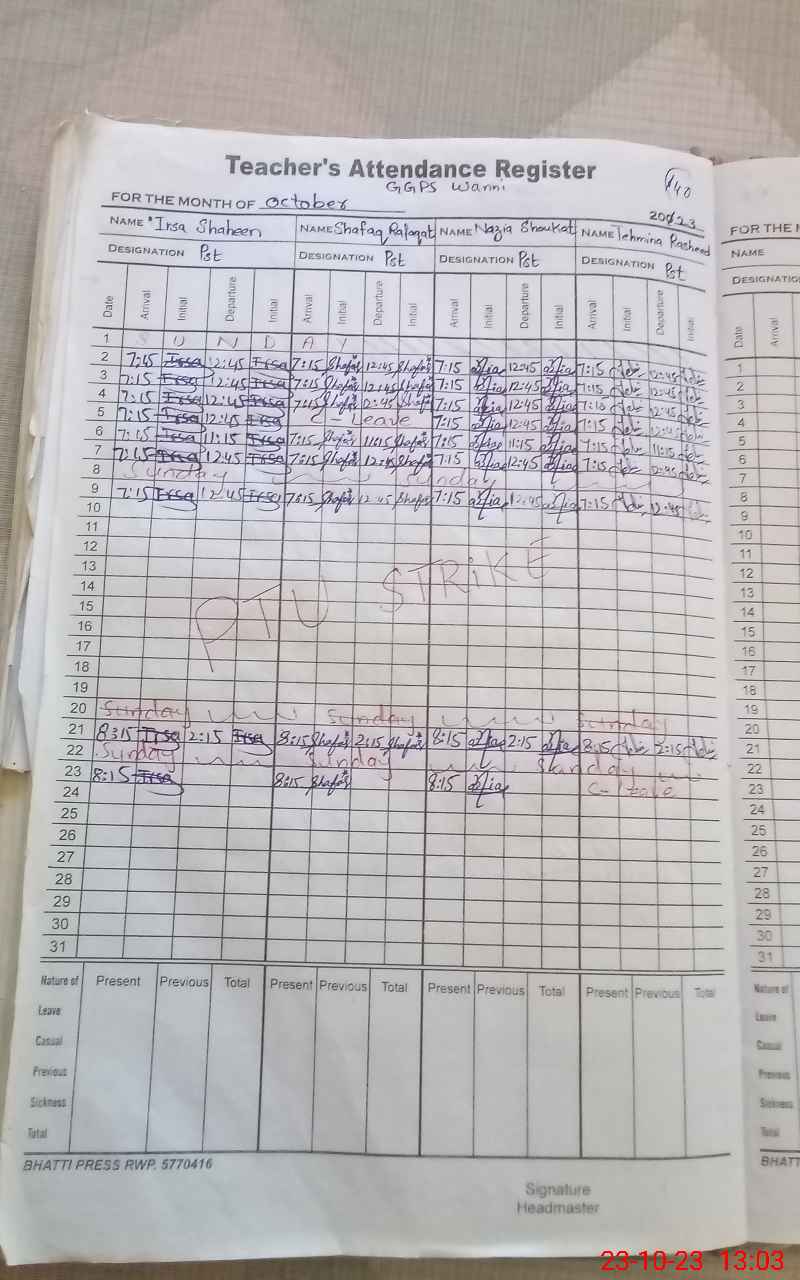 Teacher's Attendance Register
GGPS Wanni
140
FOR THE MONTH OF October 2023
NAME Irsa Shaheen NAME Shafaq Rafaqat NAME Nazia Shoukat NAME Tehmina Rasheed
DESIGNATION Pst DESIGNATION Pst DESIGNATION Pst DESIGNATION Pst
Date Arrival Initial Departure Initial Arrival Initial Departure Initial Arrival Initial Departure Initial Arrival Initial Departure Initial
1 S U N D A Y
2 7:15 Irsa 12:45 Irsa 7:15 Shafaq 12:45 Shafaq 7:15 12:45 7:15 12:45
3 7:15 Irsa 12:45 Irsa 7:15 Shafaq 12:45 Shafaq 7:15 12:45 7:15 12:45
4 7:15 Irsa 12:45 Irsa 7:15 Shafaq 12:45 Shafaq 7:15 12:45 7:15 12:45
5 7:15 Irsa 12:45 Irsa C Leave 7:15 12:45 7:15 12:45
6 7:15 Irsa 11:15 Irsa 7:15 Shafaq 11:15 Shafaq 7:15 11:15 7:15 11:15
7 7:15 Irsa 12:45 Irsa 7:15 Shafaq 12:45 Shafaq 7:15 12:45 7:15 12:45
8 Sunday Sunday
9 7:15 Irsa 12:45 Irsa 7:15 Shafaq 12:45 Shafaq 7:15 12:45 7:15 12:45
10
11
12
13
14
PTU STRIKE
15
16
17
18
19
20 Sunday Sunday Sunday
21 8:15 Irsa 2:15 Irsa 8:15 Shafaq 2:15 Shafaq 8:15 2:15 8:15 2:15
22 Sunday Sunday Sunday
23 8:15 Irsa 8:15 Shafaq 8:15 C-
24
25
26
27
28
29
30
31
Nature of Present Previous Total Present Previous Total Present Previous Total Present Previous Total
Leave
Casual
Previous
Sickness
Total
BHATTI PRESS RWP. 5770416
Signature
Headmaster
FOR THE
NAME
Date Arrival
1
2
3
4
5
6
7
8
9
10
11
12
13
14
15
16
17
18
19
20
21
22
23
24
25
26
27
28
29
30
31
Nature of
Leave
Casual
Previous
Sickness
Total
23-10-23 13:03